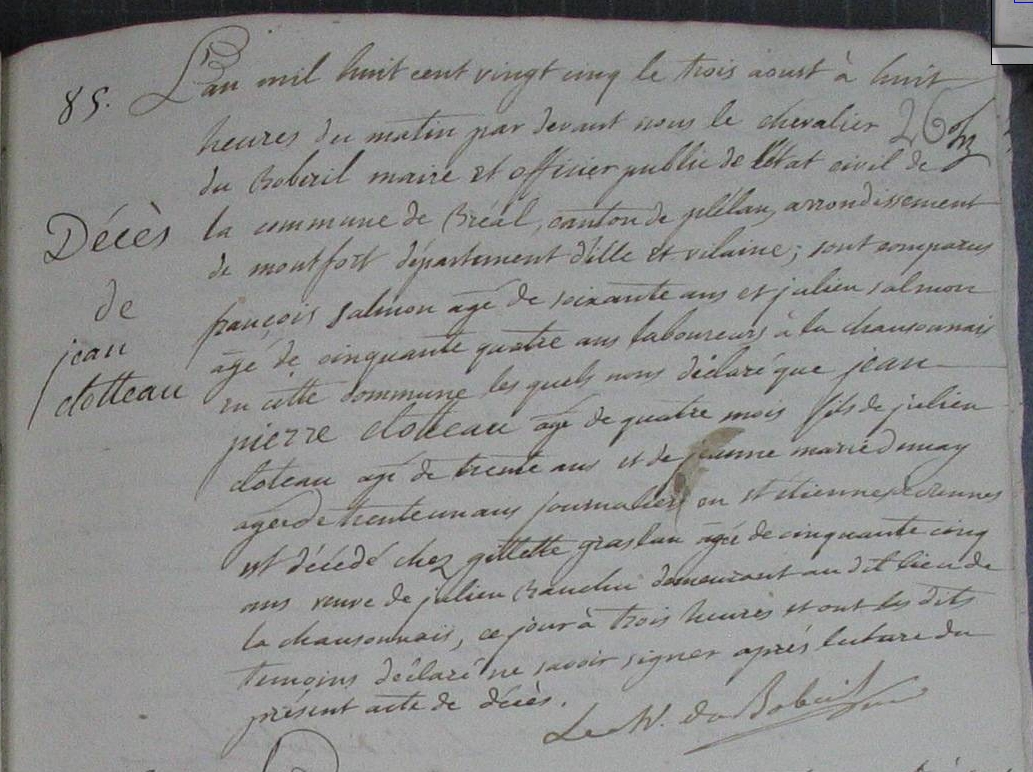 85.
L'an mil huit cent vingt cinq le trois aoust à huit
heures du matin par devant nous le chevalier
26
du Boberil maire et officier public de l'état civil de
la commune de Bréal, canton de plélan, arrondissement
de montfort département d'ille et vilaine; sont comparus
Décès
de
jean
clotteau
françois salmon agé de soixante ans et julien salmon
âgé de cinquante quatre ans laboureurs à la chausonnais
en cette commune les quels nous déclaré que jean
pierre cloteau agé de quatre mois fils de julien
cloteau agé de trente ans et de jeanne marie
agée de trente un ans journaliers en st étienne rennes
est décédé chez gillette graslan agée de cinquante cinq
ans veuve de julien demeurant au dit lieu de
la chausonnais, ce jour à trois heures et ont les dits
temoins déclaré ne savoir signer après lecture du
présent acte de décès.
Le du Boberil